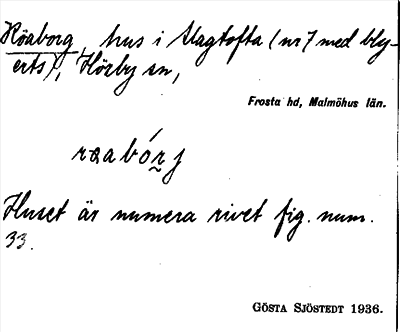 Röaborg, hus i Slagtofta (nr 7 med bly-
erts), Hörby sn,
Frosta hd, Malmöhus län.
rɞabórj
Huset är numera rivet fig. num.
33.
GÖSTA SJÖSTEDT 1936.